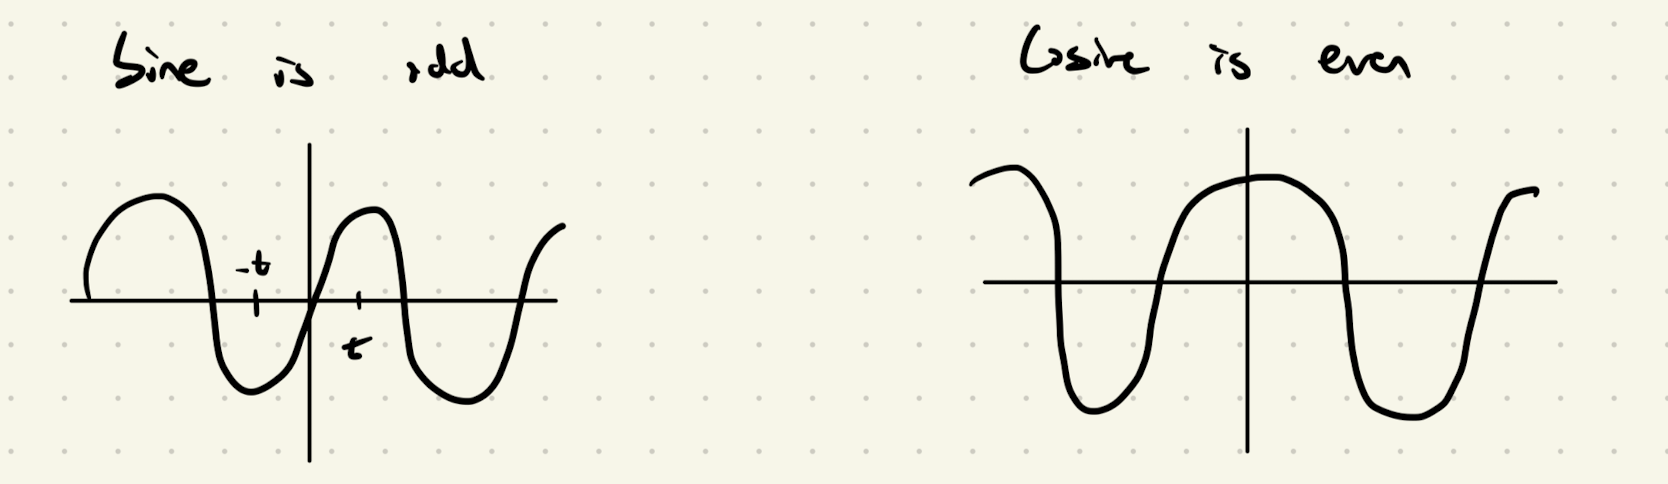 Sine is odd
Cosine is even
-t
t